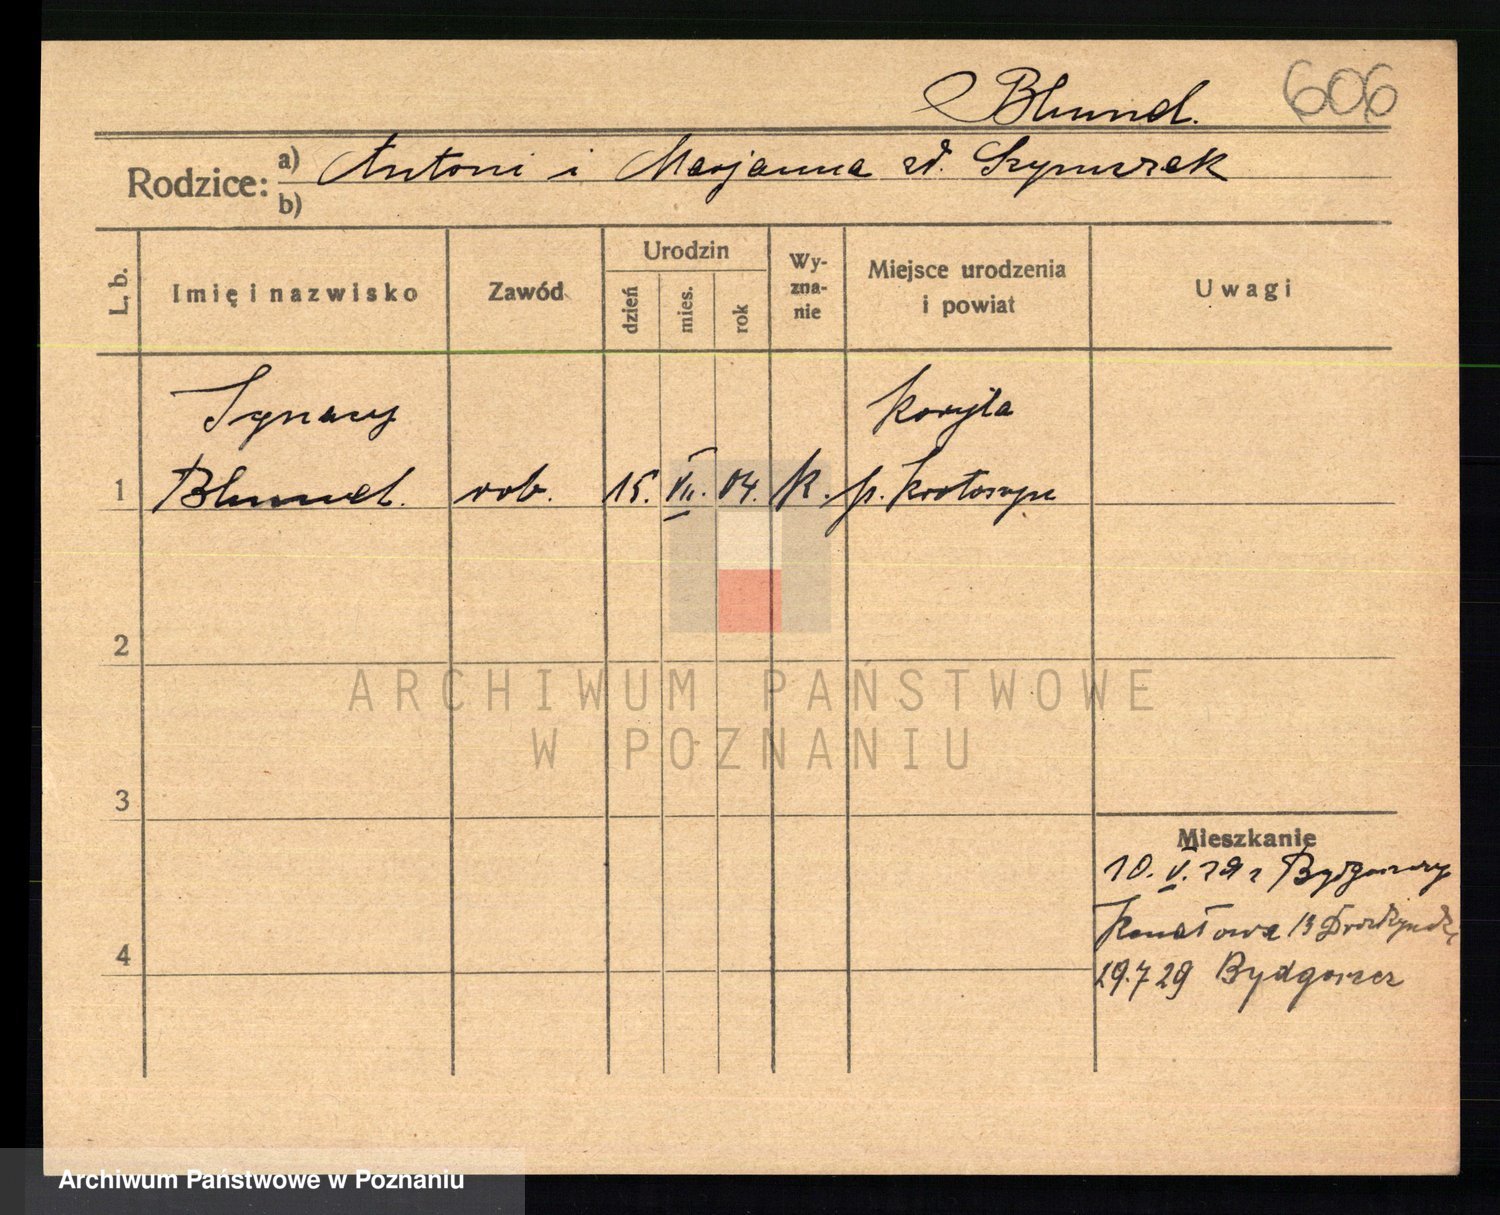 Blumel.
606
Rodzice: a) Antoni i Marjanna zd. Szymczak
b)
L. b.
Imię i nazwisko
Zawód
Urodzin
dzień
mies.
rok
Wy-
zna-
nie
Miejsce urodzenia
i powiat
Uwagi
Ignacy
Koryta
1 Blumel. rob. 15. VII. 04. k. p. Krotoszyn
2
3
4
Mieszkanie
10. V. 29 z Bydgoszczy
13
29.7 29 Bydgoszcz
ARCHIWUM PAŃSTWOWE
W POZNANIU
Archiwum Państwowe w Poznaniu